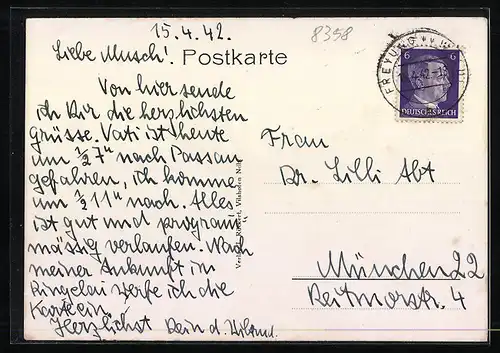 15.4.42.
8358
Liebe Musch!
Postkarte
FREYUNG
6 6
DEUTSCHES REICH
Von hier sende
ich Dir die herzlichsten
Grüsse. Vati ist heute
um ½7" nach Passau
gefahren, ich komme
um ½11" nach. Alles
ist gut und program"
mässig verlaufen. Nach
meiner Ankunft in
Ringelai werfe ich die
Karte ein.
Herzlichst Dein d.
Rückert, Vilshofen Ndb.
Frau
Dr. Lilli Abt
München 22
Reitmorstr. 4